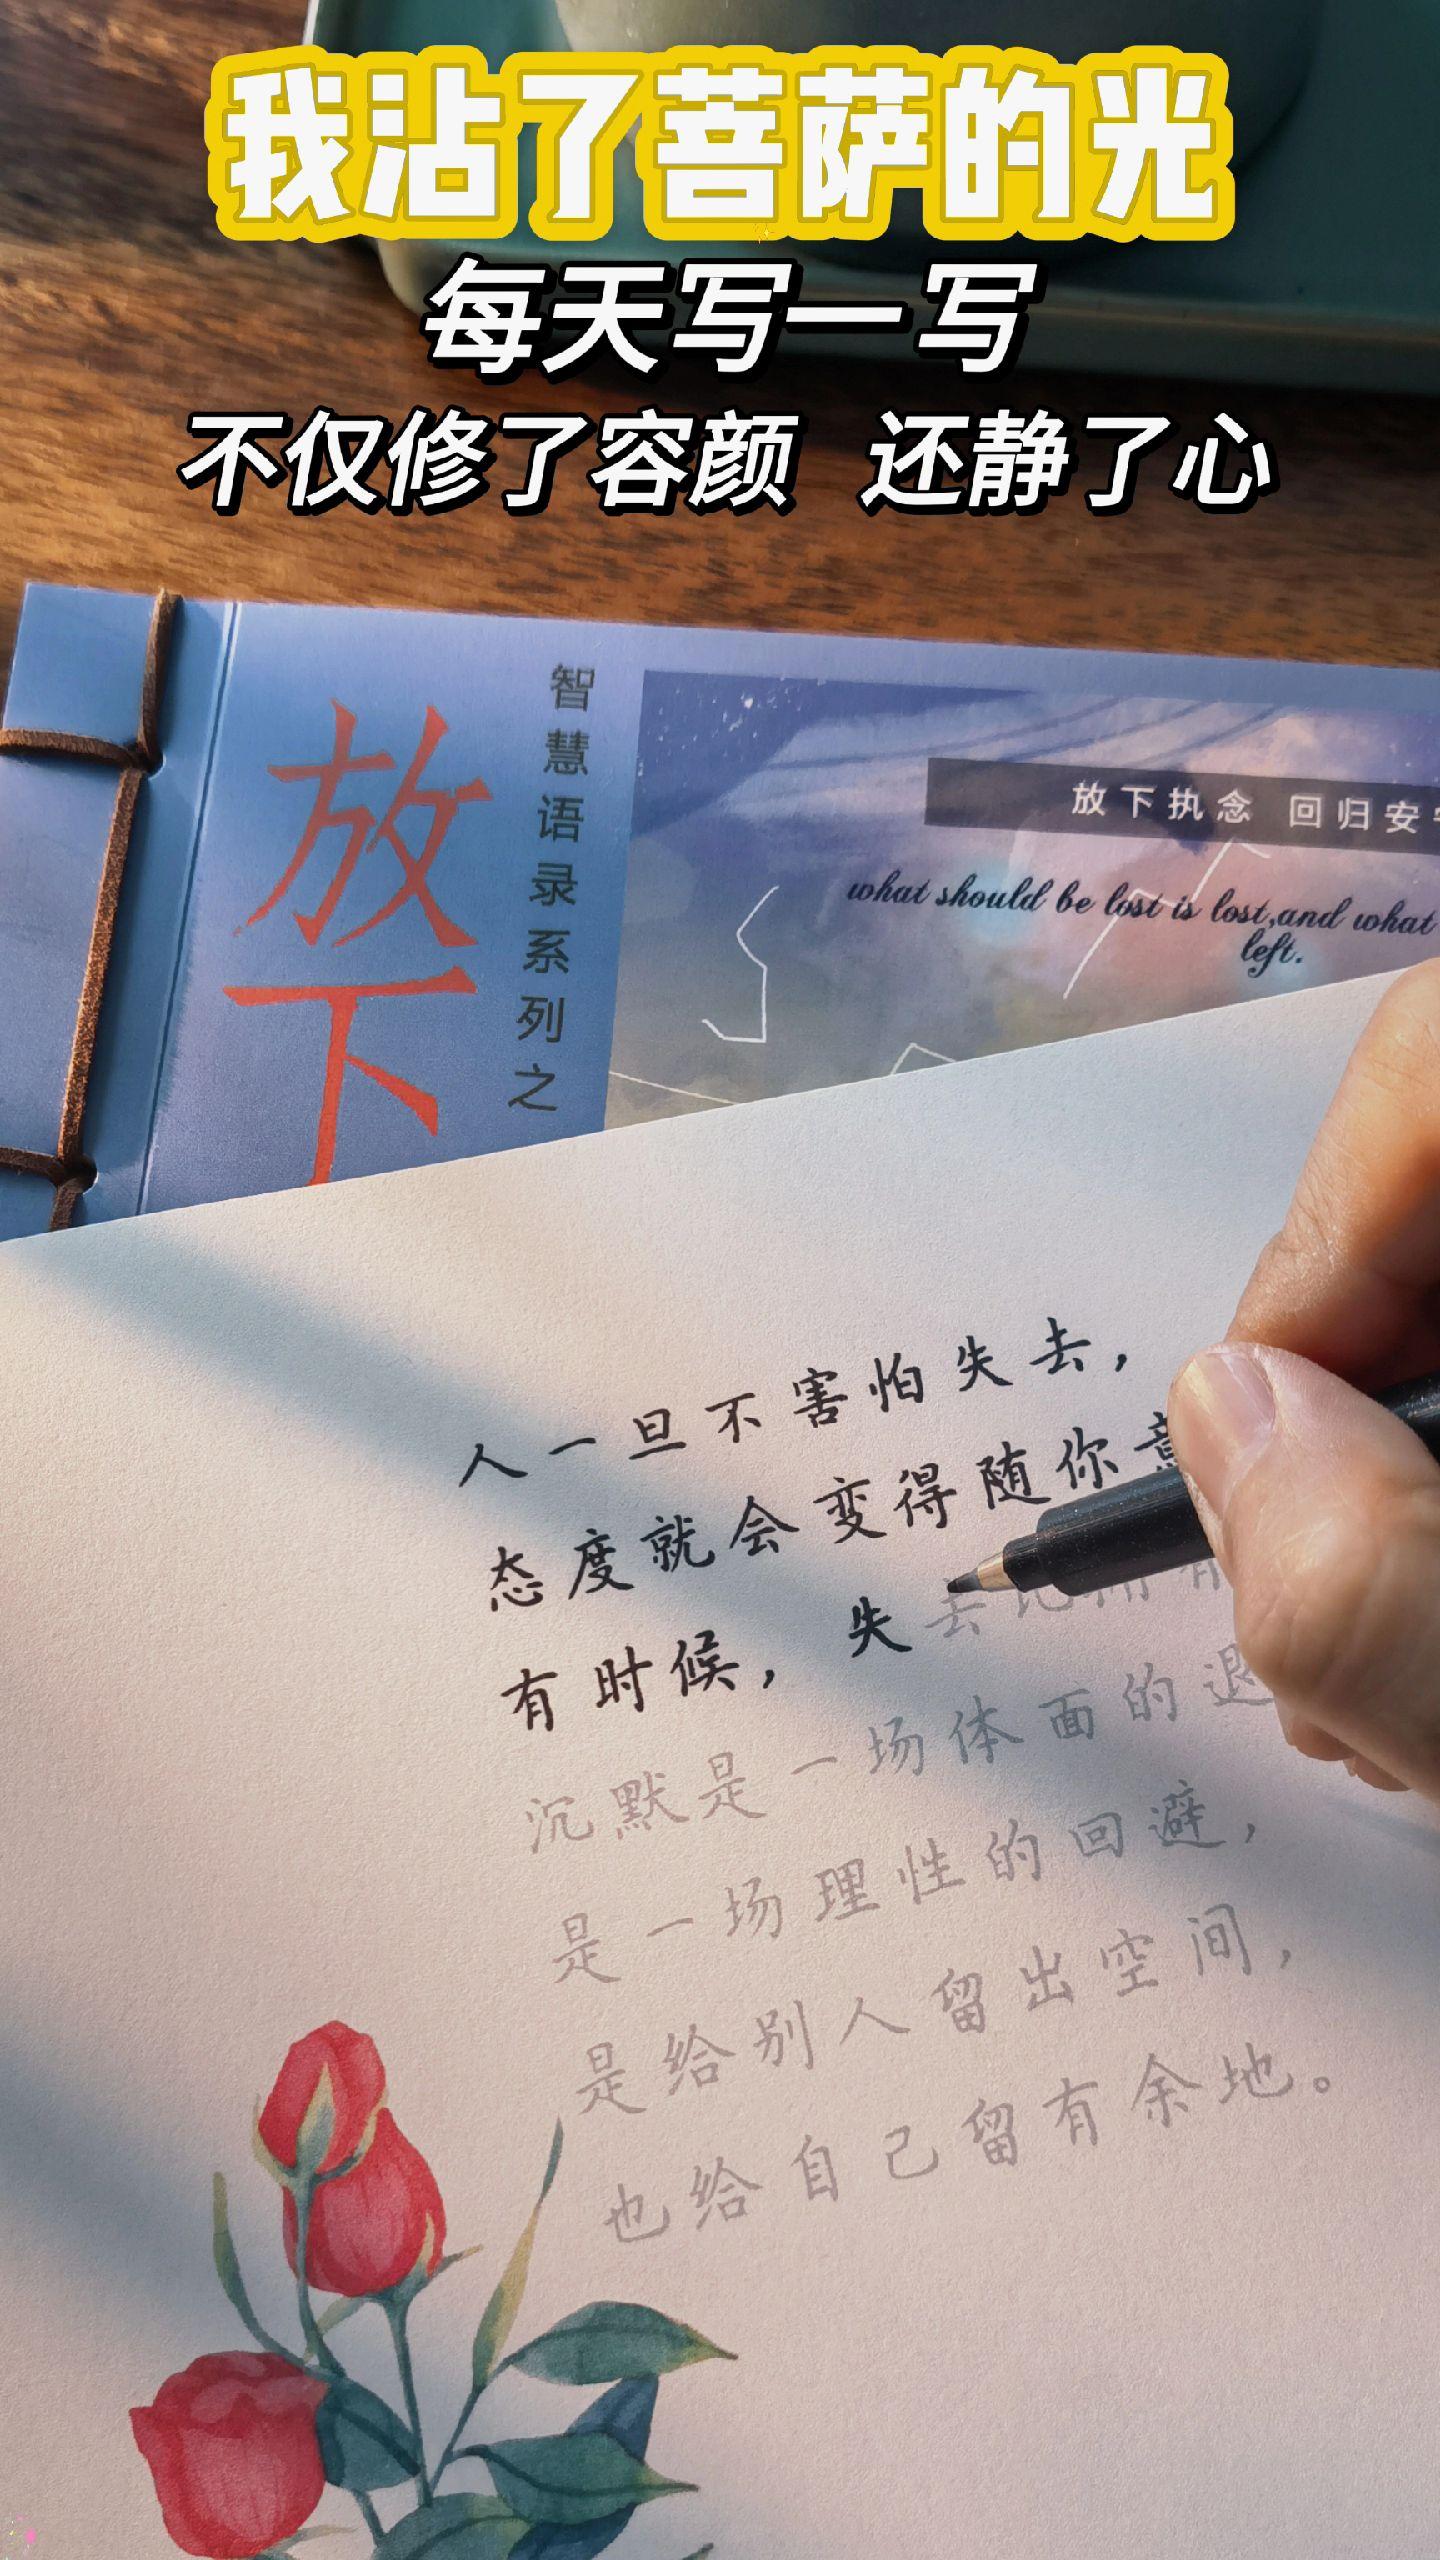 我沾了菩萨的光
每天写一写
不仅修了容颜 还静了心
放下
智慧语录系列之
放下执念 回归安
what should be lost is lost,and what
left.
人一旦不害怕失去，
态度就会变得随你意
有时候，失去比拥有
沉默是一场体面的退
是一场理性的回避，
是给别人留出空间，
也给自己留有余地。